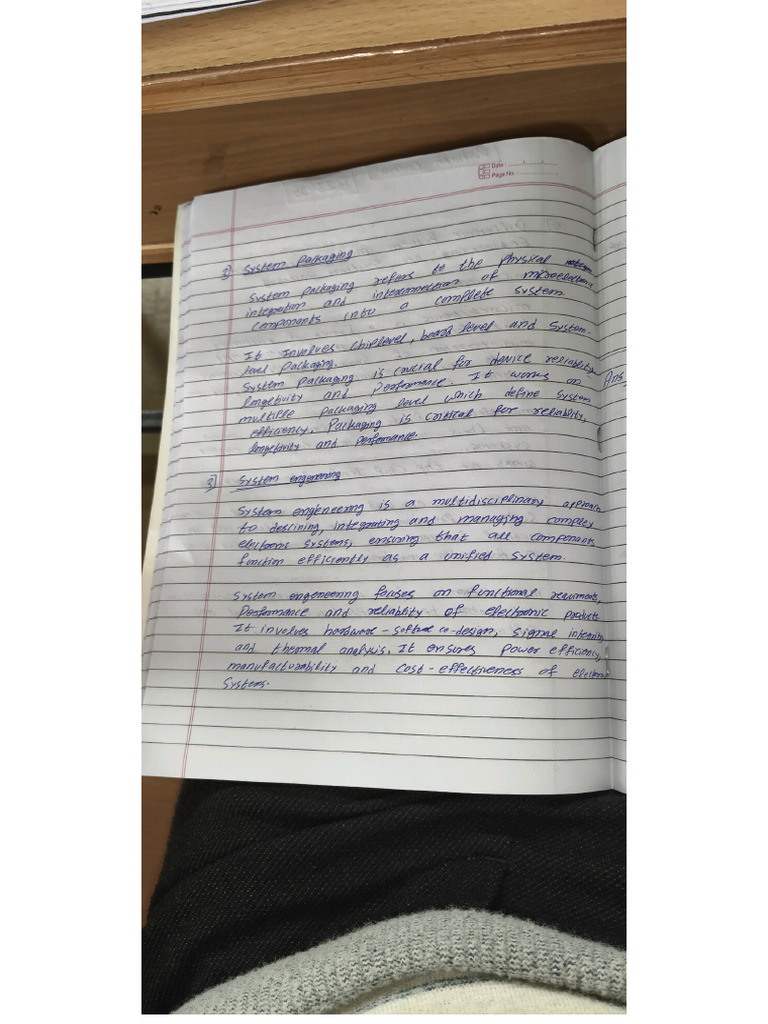 Date :
Page No. :
2] System Packaging
System packaging refers to the physical
integration and interconnection of microelectronic
components into a complete system
It Involves Chiplevel, board level and System-
level Packaging.
System Packaging is crucial for device reliability
longetivity and Performance. It works on
multiple packaging level which define system
efficiency. Packaging is critical for reliability,
longetivity and perfomance.
3] System engeneering
System engeneering is a multidisciplinary approach
to desining, integrating and managing complex
electronic systems, ensuring that all components
function efficiently as a unified system.
System engeneering focuses on functional requirments,
Performance and reliability of electronic products
It involves hardware - software co-design, signal integrity
and thermal analysis. It ensures power efficiency,
manufacturability and cost - effectiveness of electronic
Systems.
Ans